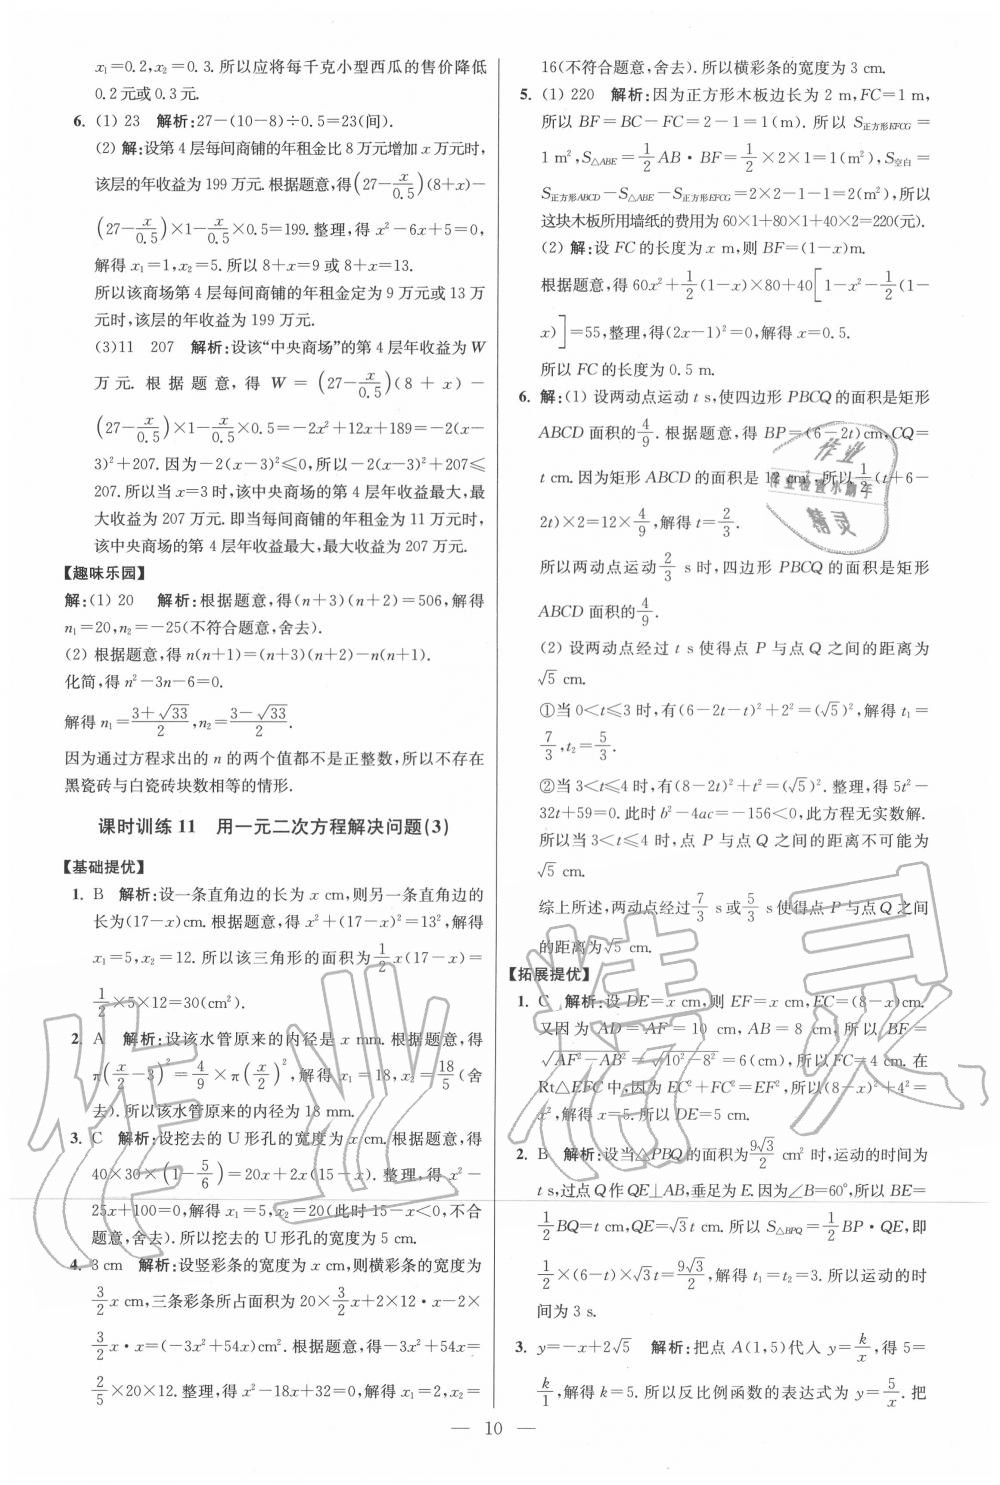 x₁=0.2,x₂=0.3.所以应将每千克小型西瓜的售价降低
0.2元或0.3元.
6. (1) 23 解析:27-(10-8)÷0.5=23(间).
(2) 解:设第4层每间商铺的年租金比8万元增加x万元时,
该层的年收益为199万元.根据题意,得(27-x/0.5)(8+x)-
(27-x/0.5)×1-x/0.5×0.5=199.整理,得x²-6x+5=0,
解得x₁=1,x₂=5.所以8+x=9或8+x=13.
所以该商场第4层每间商铺的年租金定为9万元或13万
元时,该层的年收益为199万元.
(3)11 207 解析:设该“中央商场”的第4层年收益为W
万元.根据题意,得W=(27-x/0.5)(8+x)-
(27-x/0.5)×1-x/0.5×0.5=-2x²+12x+189=-2(x-
3)²+207.因为-2(x-3)²≤0,所以-2(x-3)²+207≤
207.所以当x=3时,该中央商场的第4层年收益最大,最
大收益为207万元.即当每间商铺的年租金为11万元时,
该中央商场的第4层年收益最大,最大收益为207万元.
【趣味乐园】
解:(1) 20 解析:根据题意,得(n+3)(n+2)=506,解得
n₁=20,n₂=-25(不符合题意,舍去).
(2) 根据题意,得n(n+1)=(n+3)(n+2)-n(n+1).
化简,得n²-3n-6=0.
解得n₁=(3+√33)/2,n₂=(3-√33)/2.
因为通过方程求出的n的两个值都不是正整数,所以不存在
黑瓷砖与白瓷砖块数相等的情形.
课时训练11 用一元二次方程解决问题(3)
【基础提优】
1. B 解析:设一条直角边的长为x cm,则另一条直角边的
长为(17-x)cm.根据题意,得x²+(17-x)²=13²,解得
x₁=5,x₂=12.所以该三角形的面积为1/2x(17-x)=
1/2×5×12=30(cm²).
2. A 解析:设该水管原来的内径是x mm.根据题意,得
π(x/2-3)²=4/9×π(x/2)²,解得x₁=18,x₂=18/5(舍
去).所以该水管原来的内径为18 mm.
3. C 解析:设挖去的U形孔的宽度为x cm.根据题意,得
40×30×(1-5/6)=20x+2x(15-x).整理,得x²-
25x+100=0,解得x₁=5,x₂=20(此时15-x<0,不合
题意,舍去).所以挖去的U形孔的宽度为5 cm.
4. 3 cm 解析:设竖彩条的宽度为x cm,则横彩条的宽度为
3/2x cm,三条彩条所占面积为20×3/2x+2×12·x-2×
3/2x·x=(-3x²+54x)cm².根据题意,得-3x²+54x=
2/5×20×12.整理,得x²-18x+32=0,解得x₁=2,x₂=
16(不符合题意,舍去).所以横彩条的宽度为3 cm.
5. (1) 220 解析:因为正方形木板边长为2 m,FC=1 m,
所以BF=BC-FC=2-1=1(m).所以S正方形EFCG=
1 m²,S△ABE=1/2AB·BF=1/2×2×1=1(m²),S空白=
S正方形ABCD-S△ABE-S正方形EFCG=2×2-1-1=2(m²),所以
这块木板所用墙纸的费用为60×1+80×1+40×2=220(元).
(2) 解:设FC的长度为x m,则BF=(1-x)m.
根据题意,得60x²+1/2(1-x)×80+40[1-x²-1/2(1-
x)]=55,整理,得(2x-1)²=0,解得x=0.5.
所以FC的长度为0.5 m.
6. 解:(1) 设两动点运动t s,使四边形PBCQ的面积是矩形
ABCD面积的4/9.根据题意,得BP=(6-2t)cm,CQ=
t cm.因为矩形ABCD的面积是12 cm²,所以1/2(t+6-
2t)×2=12×4/9,解得t=2/3.
所以两动点运动2/3 s时,四边形PBCQ的面积是矩形
ABCD面积的4/9.
(2) 设两动点经过t s使得点P与点Q之间的距离为
√5 cm.
①当0<t≤3时,有(6-2t-t)²+2²=(√5)²,解得t₁=
7/3,t₂=5/3.
②当3<t≤4时,有(8-2t)²+t²=(√5)².整理,得5t²-
32t+59=0.此时b²-4ac=-156<0,此方程无实数解.
所以当3<t≤4时,点P与点Q之间的距离不可能为
√5 cm.
综上所述,两动点经过7/3 s或5/3 s使得点P与点Q之间
的距离为√5 cm.
【拓展提优】
1. C 解析:设DE=x cm,则EF=x cm,EC=(8-x)cm.
又因为AD=AF=10 cm,AB=8 cm,所以BF=
√AF²-AB²=√10²-8²=6(cm),所以FC=4 cm.在
Rt△EFC中,因为EC²+FC²=EF²,所以(8-x)²+4²=
x²,解得x=5.所以DE=5 cm.
2. B 解析:设当△PBQ的面积为9√3/2 cm²时,运动的时间为
t s,过点Q作QE⊥AB,垂足为E.因为∠B=60°,所以BE=
1/2BQ=t cm,QE=√3t cm.所以S△BPQ=1/2BP·QE,即
1/2×(6-t)×√3t=9√3/2,解得t₁=t₂=3.所以运动的时
间为3 s.
3. y=-x+2√5 解析:把点A(1,5)代入y=k/x,得5=
k/1,解得k=5.所以反比例函数的表达式为y=5/x.把
— 10 —
作业精灵
作业
精灵